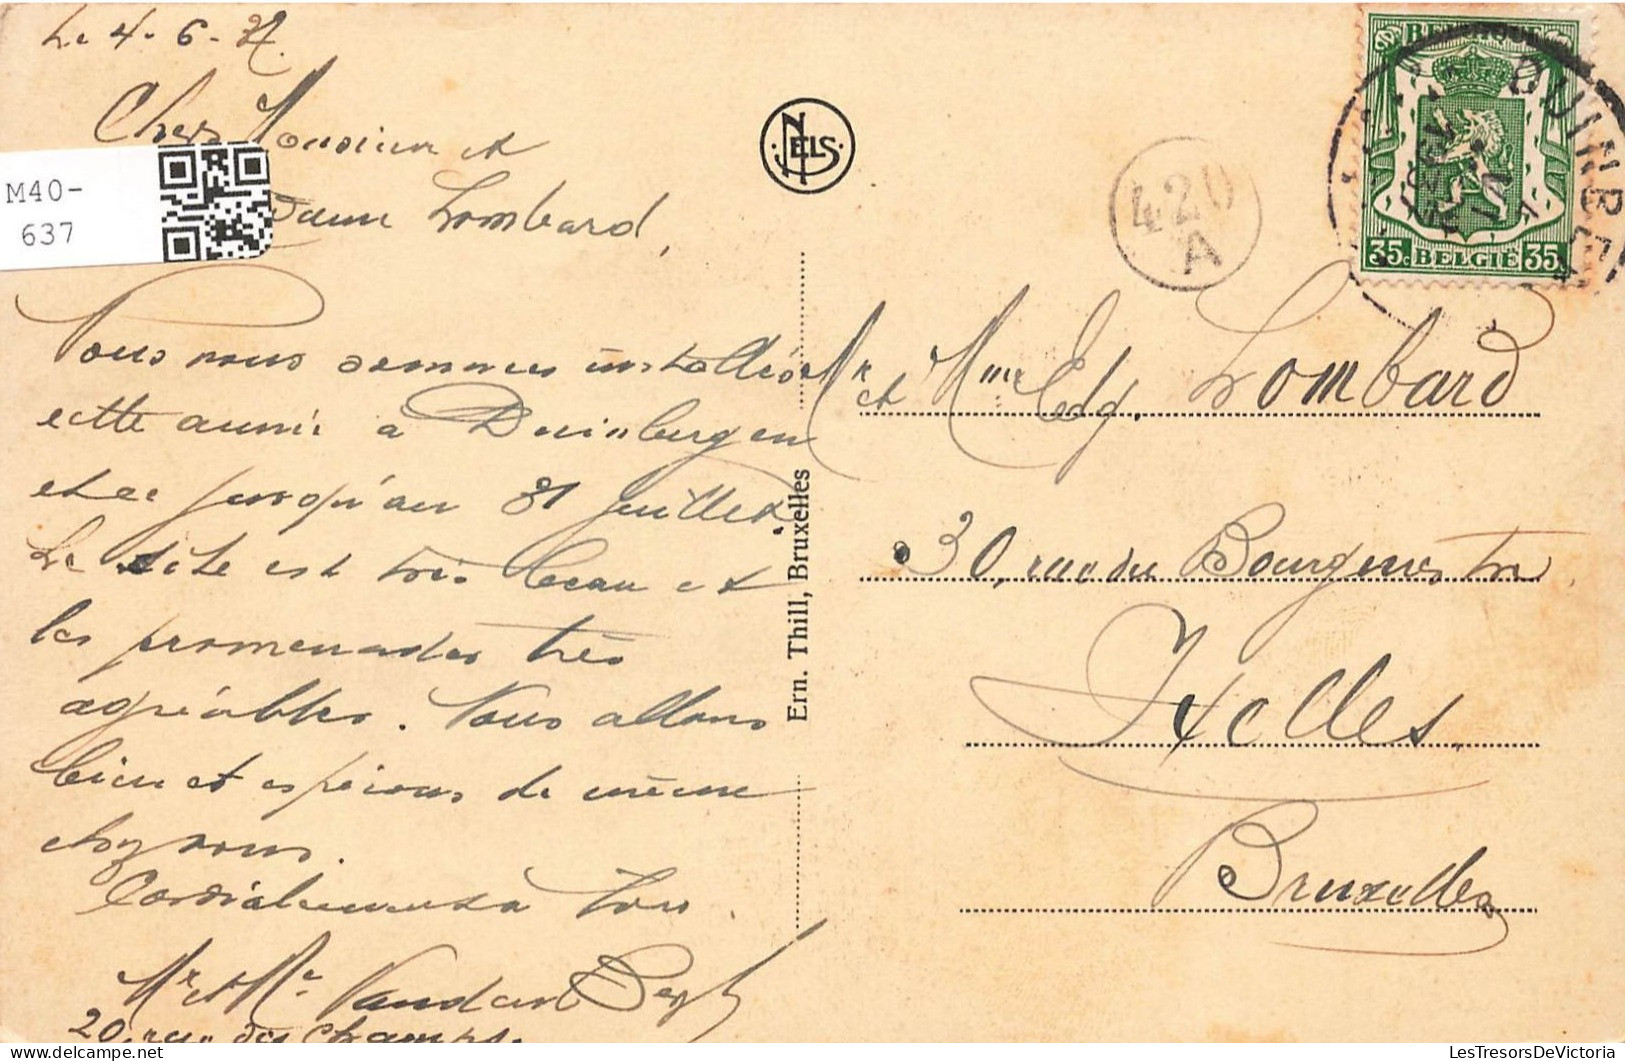 Le 4-6-37.
Chers Monsieur et
Lombard,
Nous nous sommes installés
cette année à Duinbergen
et ce jusqu'au 31 juillet.
Le site est très beau et
les promenades très
agréables. Nous allons
bien et espérons de même
chez vous.
Cordialement à tous.
Mr et Me Vanden
20, rue des Champs.
M40-
637
NELS
Ern. Thill, Bruxelles
420
A
BELGIQUE
35c BELGIË 35c
DUINBERGEN
Mr et Mme Edg. Lombard
30, rue du Bourgmestre
Ixelles
Bruxelles
LesTresorsDeVictoria